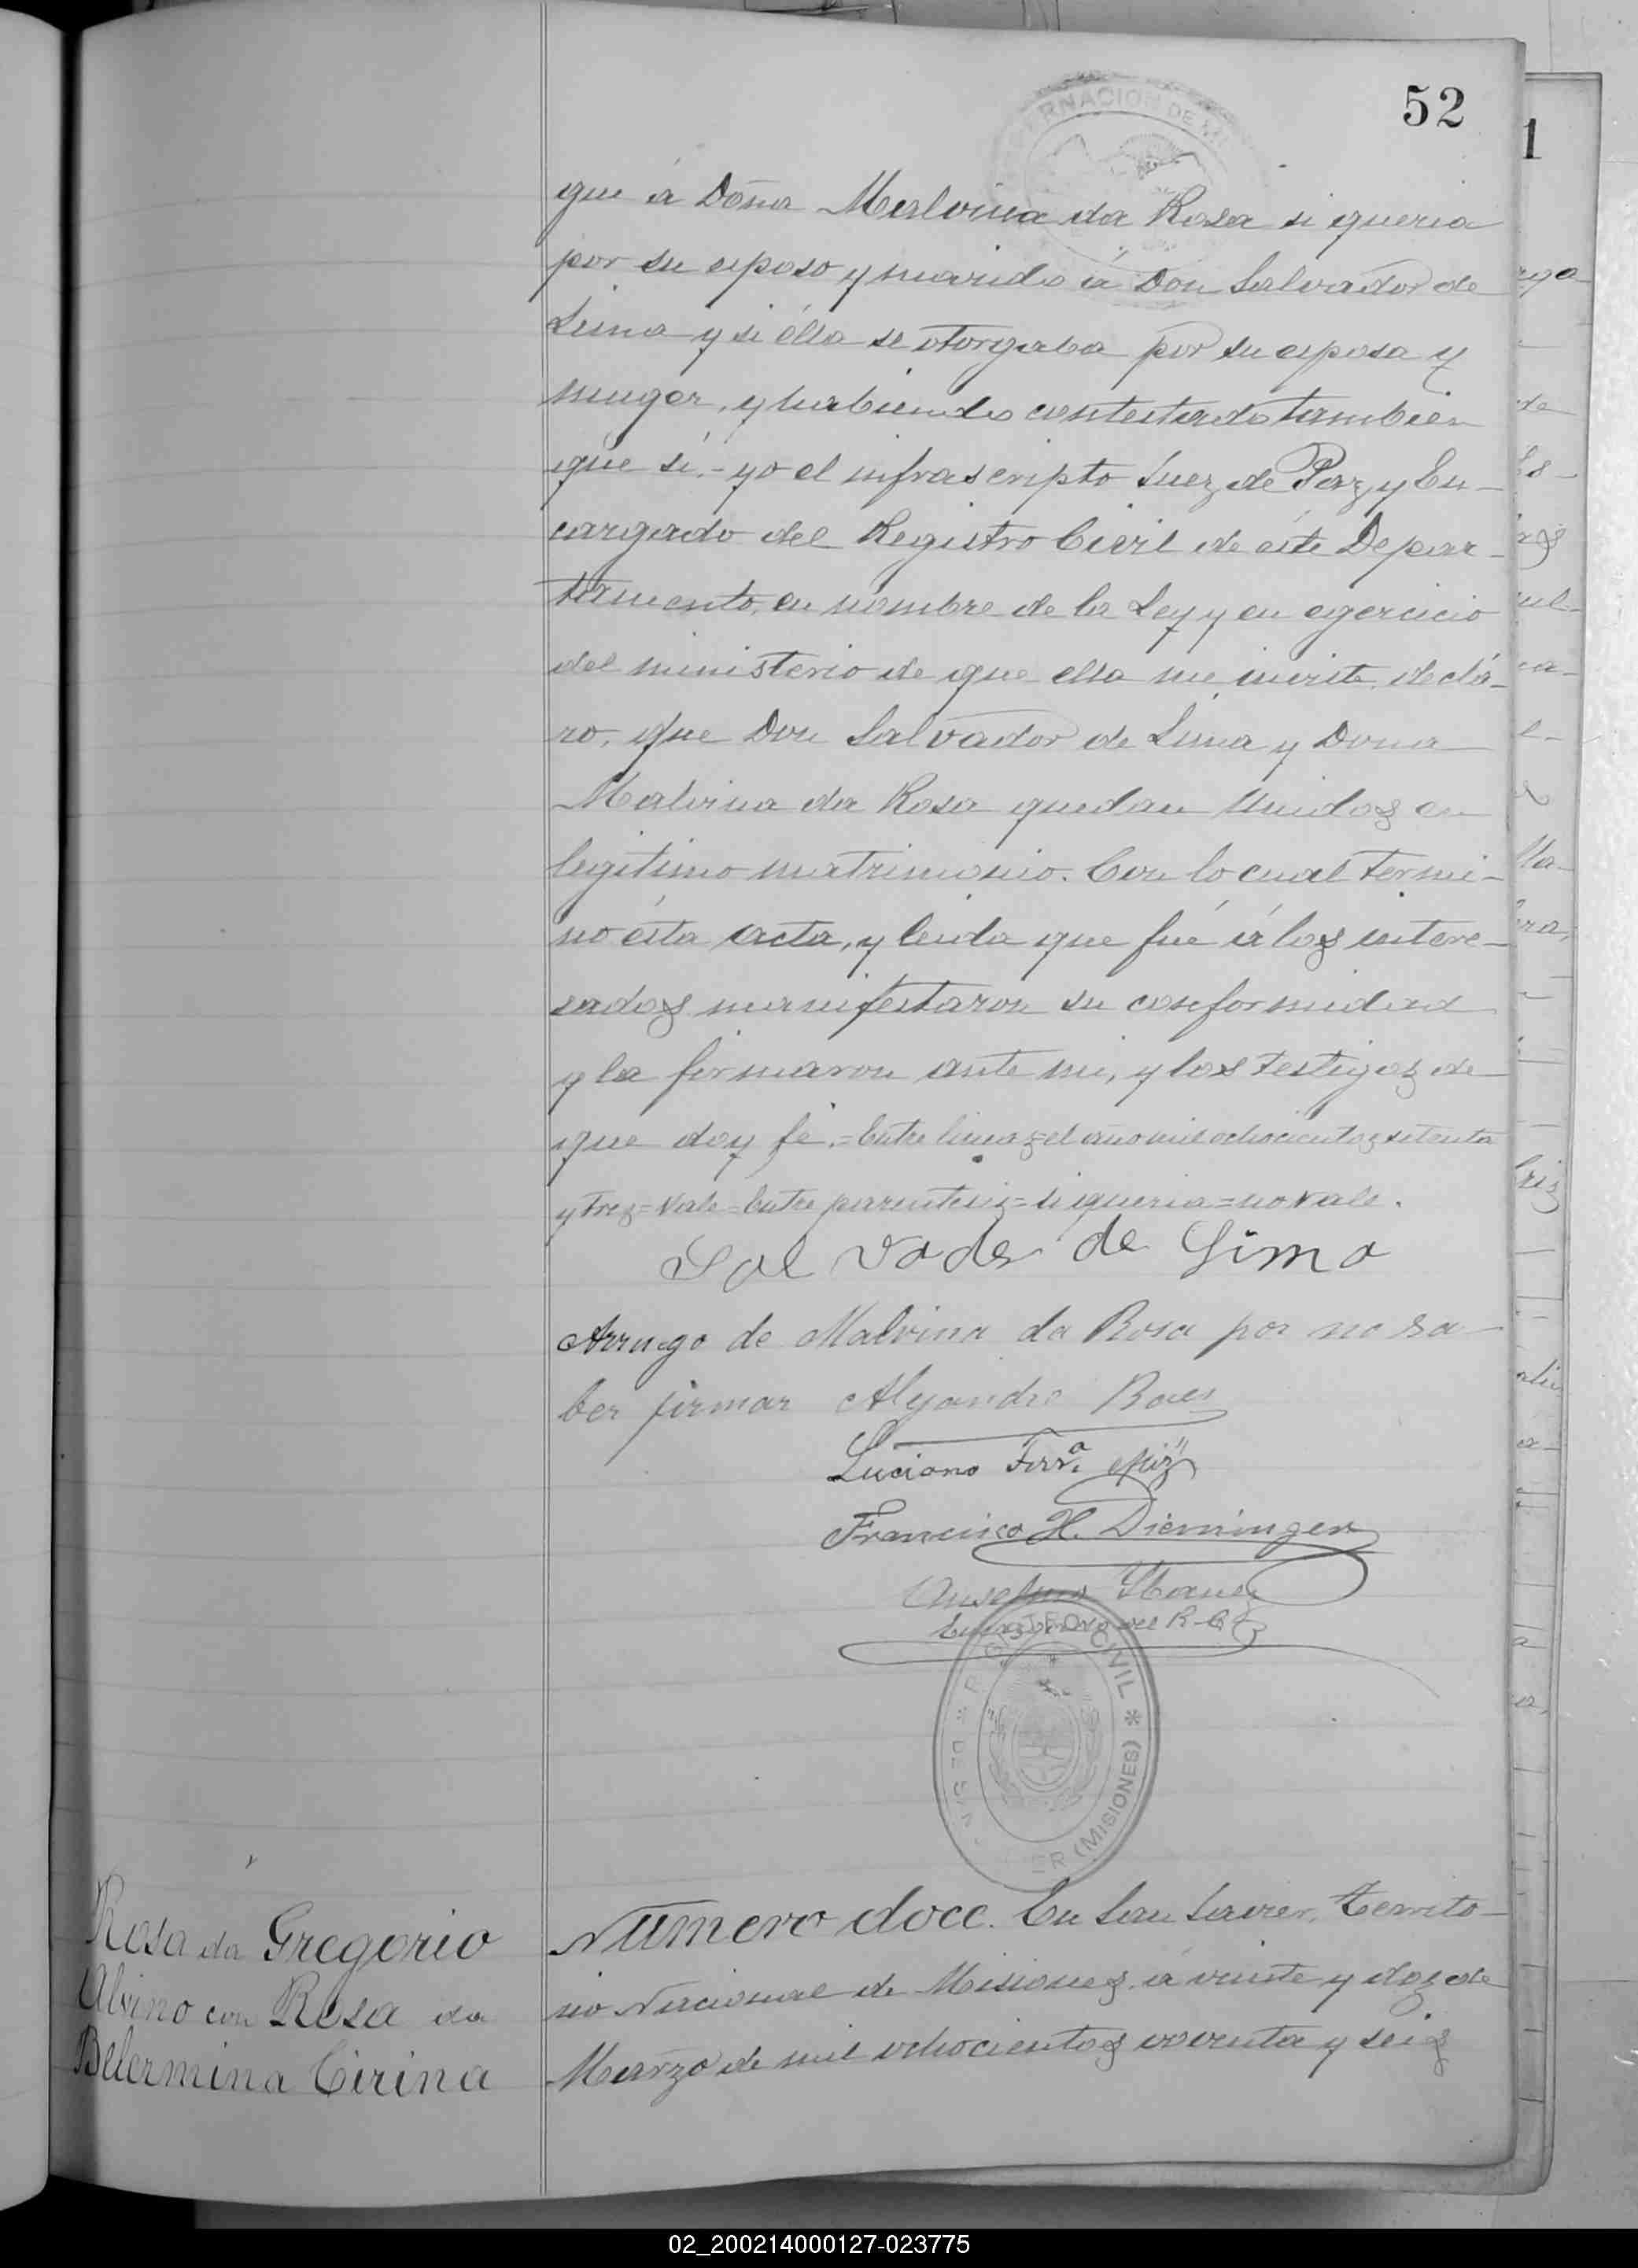 52
GOBERNACION DE MI
que á Doña Malvina da Rosa si queria
por su esposo y marido á Don Salvador de
Lima y si élla se otorgaba por su esposa y
muger, y habiendo contestado tambien
que si,- yo el infrascripto Juez de Paz y En-
cargado del Registro Civil de éste Depar-
tamento, en nombre de la Ley y en egercicio
del ministerio de que ella me inviste, declá-
ro, que Don Salvador de Lima y Dona
Malvina da Rosa quedan Unidos en
legitimo matrimonio. Con lo cual termi-
nó ésta acta, y leida que fué á los intere-
sados manifestaron su conformidad
y la firmaron ante mi, y los testigos de
que doy fé.= Entre lineas= el año mil ochocientos setenta
y tres= Vale= Entre parentesis= si queria= no vale.
Sal vador de Lima
Arruego de Malvina da Rosa por no sa-
ber firmar Alejandro Baes
Luciano Ferr.ª
Francisco H. Dieminger
Anselmo
Encargado del R-C
REGISTRO CIVIL * (MISIONES)
Rosa da Gregorio
Alvino con Rosa da
Belermina Cirina
Número doce. En San Javier, Territo-
rio Nacional de Misiones, á veinte y dos de
Marzo de mil ochocientos noventa y seis
02_200214000127-023775